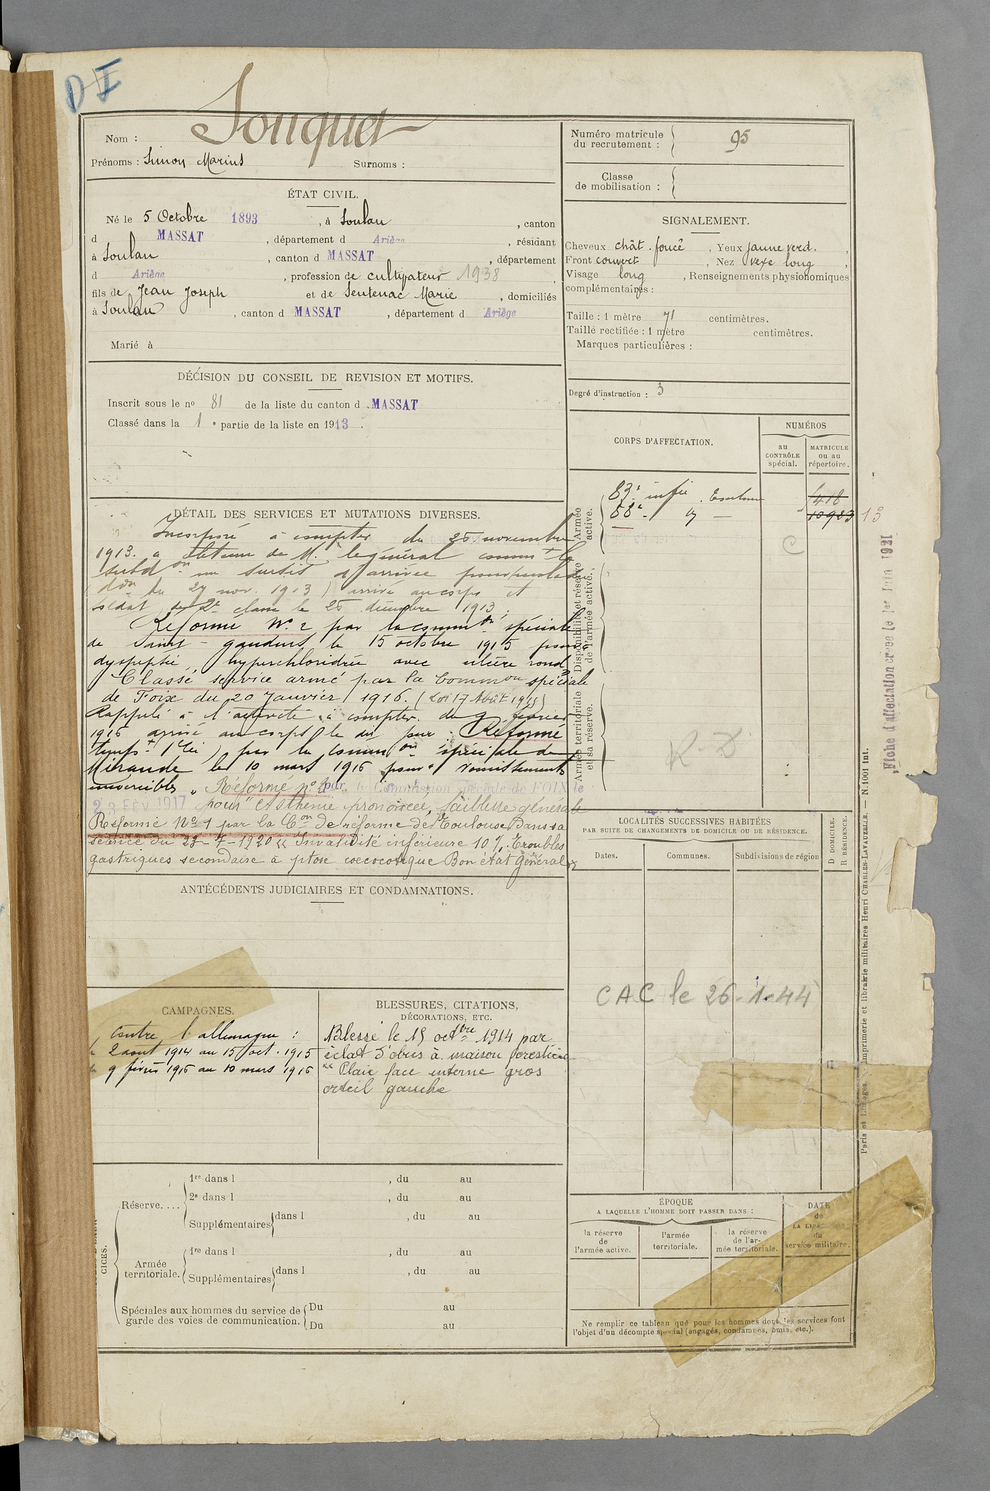 DI
Nom : Souquet
Prénoms : Simon Marius Surnoms :
Numéro matricule du recrutement : 95
Classe de mobilisation :
ÉTAT CIVIL.
Né le 5 Octobre 1893, à Soulan, canton
d MASSAT, département d Ariège, résidant
à Soulan, canton d MASSAT, département
d Ariège, profession de cultivateur 1938
fils de Jean Joseph et de Sentenac Marie, domiciliés
à Soulan, canton d MASSAT, département d Ariège
Marié à
SIGNALEMENT.
Cheveux chât. foncé, Yeux jaune verd.
Front couvert, Nez vexe long
Visage long, Renseignements physionomiques
complémentaires :
Taille : 1 mètre 71 centimètres.
Taille rectifiée : 1 mètre centimètres.
Marques particulières :
Degré d'instruction : 3
DÉCISION DU CONSEIL DE REVISION ET MOTIFS.
Inscrit sous le no 81 de la liste du canton d MASSAT
Classé dans la 1e partie de la liste en 1913.
DÉTAIL DES SERVICES ET MUTATIONS DIVERSES.
Incorporé à compter du 26 novembre
1913. a obtenu de M. le général commt la
subdon un sursit d'arrivée pour maladie
(don du 27 nov. 1913) arrivé au corps et
soldat de 2e classe le 26 décembre 1913.
Réformé No 2 par la common spéciale
de Saint-gaudens le 15 octobre 1915 pour
dyspepsie hyperchloridrie avec ulcère rond
Classé service armé par la Commion spéciale
de Foix du 20 Janvier 1916. (Loi 17 Août 1915)
Rappelé à l'activité à compter du 9 février
1916 arrivé au corps le dit jour. Réformé
tempre 1 (bis) par la common spéciale de
Mirande le 10 mars 1916 pour "vomissements
incoercibles" Réformé no 2 par la Commission spéciale de FOIX le
23 FEV 1917 pour "Asthénie prononcée, faiblesse générale
Réformé No 1 par la Con de réforme de Toulouse Dans sa
séance du 28-7-1920 "Invalidité inférieure 10% Troubles
gastriques secondaire à ptose coecocolique Bon état général"
CORPS D'AFFECTATION.
NUMÉROS
au CONTRÔLE spécial.
MATRICULE ou au répertoire.
Armée active.
83e infie
418
88e - 
10983 13
C
Disponibilité et réserve de l'armée active.
Armée territoriale et sa réserve.
R. D.
Fiche d'affectation créée le 1er Juin 1921
LOCALITÉS SUCCESSIVES HABITÉES
PAR SUITE DE CHANGEMENTS DE DOMICILE OU DE RÉSIDENCE.
Dates. Communes. Subdivisions de région
D DOMICILE. R RÉSIDENCE.
CAC le 26-1-44
ANTÉCÉDENTS JUDICIAIRES ET CONDAMNATIONS.
CAMPAGNES.
Contre l'allemagne :
2 aout 1914 au 15 oct. 1915
9 févrir 1916 au 10 mars 1916
BLESSURES, CITATIONS,
DÉCORATIONS, ETC.
Blessé le 15 octbre 1914 par
éclat d'obus à maison forestière
" Plaie face interne gros
orteil gauche
Réserve....
1re dans l , du au
2e dans l , du au
Supplémentaires dans l , du au
Armée territoriale.
1re dans l , du au
Supplémentaires dans l , du au
Spéciales aux hommes du service de garde des voies de communication.
Du au
Du au
ÉPOQUE
A LAQUELLE L'HOMME DOIT PASSER DANS :
la réserve de l'armée active.
l'armée territoriale.
la réserve de l'armée territoriale.
DATE de LA LIBÉ du service militaire.
Ne remplir ce tableau que pour les hommes dont les services font
l'objet d'un décompte spécial (engagés, condamnés, omis, etc.).
Paris et Limoges. Imprimerie et librairie militaires Henri CHARLES-LAVAUZELLE. — N. 1001 Int.